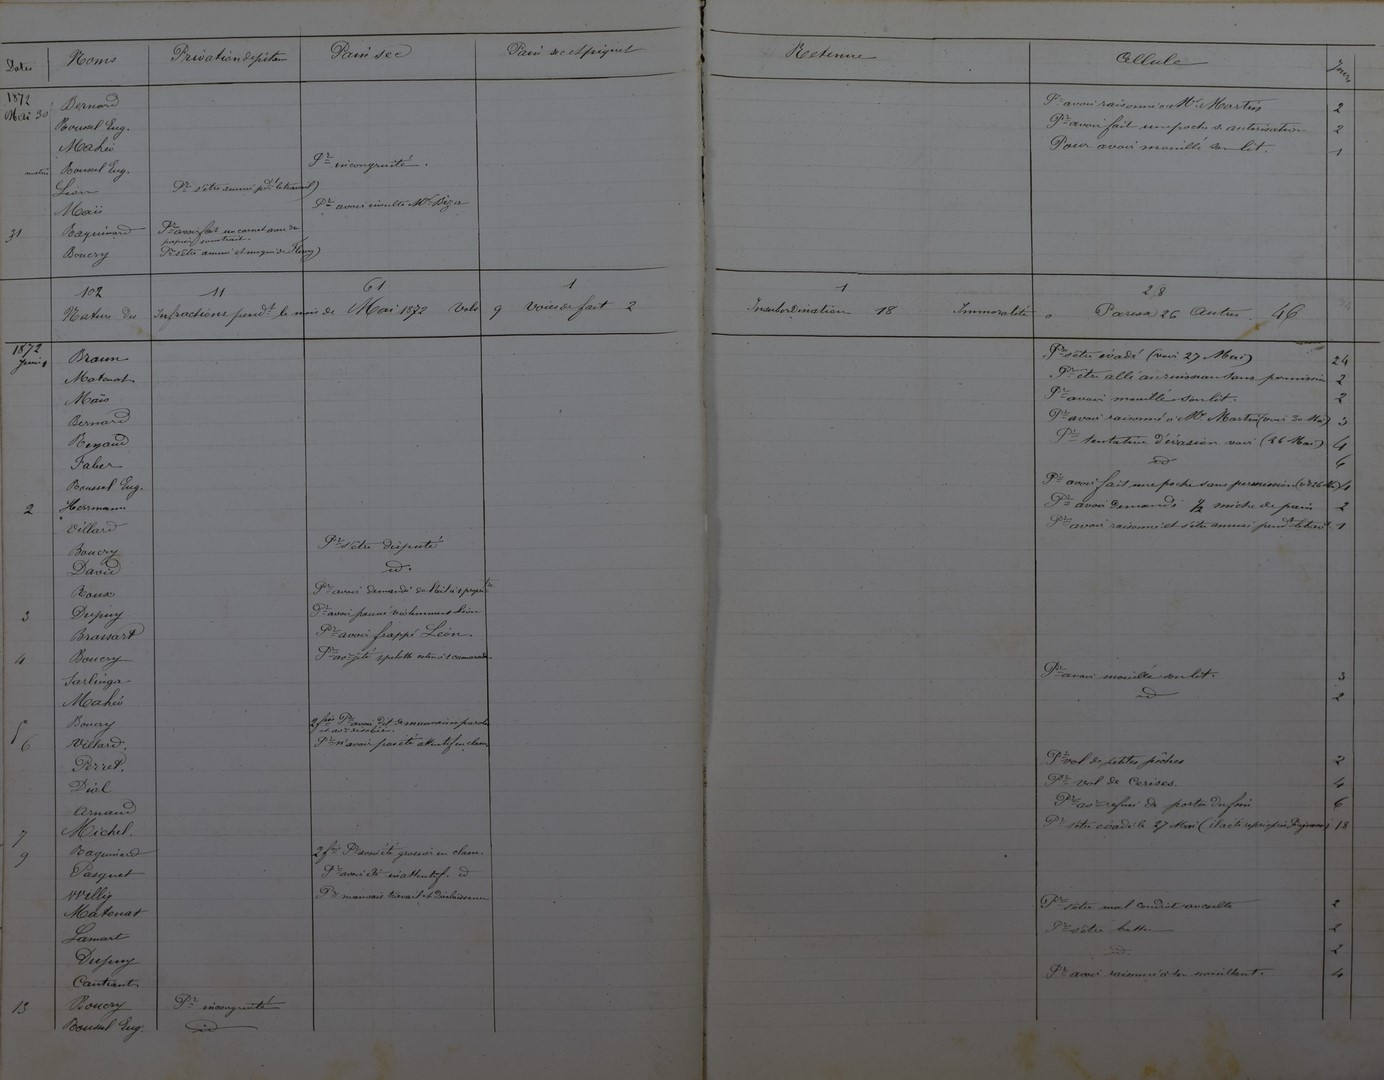 Dates Noms Privation de pitance Pain sec Pain sec et piquet Retenue Cellule Jours
1872
Mai 30 Bernard Pr avoir raisonné à Mr Martin 2
Roussel Eug. Pr avoir fait une poche s. autorisation 2
Mahé Pour avoir mouillé son lit. 1
Roussel Eug. Pr incongruité.
Léon Pr s'être amusé pdt le travail
Maïs Pr avoir insulté Mr
31 Raquinard Pr avoir fait un carnet avec du
papier soustrait.
Boucry Pr s'être amusé et moqué de Fleury
102 11 61 1 1 28
Nature des Infractions pendt le mois de Mai 1872 Vols 9 Voies de fait 2 Insubordination 18 Immoralité 0 Paresse 26 Autres. 46
1872
Juin 1 Braun Pr s'être évadé (voir 27 Mai) 24
Matenat Pr être allé au ruisseau sans permission 2
Maïs Pr avoir mouillé son lit. 2
Bernard Pr avoir raisonné à Mr Martin (voir 30 Mai) 3
Reynaud Pr tentative d'évasion voir (26 Mai) 4
Faber id 6
Roussel Eug. Pr avoir fait une poche sans permission 4
2 Herrmann Pr avoir demandé 1/2 miche de pain 2
Villard Pr avoir raisonné et s'être amusé pendt le travail 1
Boucry Pr s'être disputé
David id.
Roux Pr avoir demandé
3 Dupuy Pr avoir poussé violemment Léon
Brassart Pr avoir frappé Léon.
4 Boucry Pr av. jeté
Sarlinga Pr avoir mouillé son lit. 3
Mahé id 2
5 Boucry 2 fois Pr avoir dit de mauvaises paroles
6 Villard. Pr n'avoir pas été attentif en classe
Perret. Pr vol de petites pêches 2
Diol Pr vol de Cerises. 4
Arnaud Pr av. refusé de porter du foin 6
7 Michel. Pr s'être évadé le 27 Mai (il a été repris par 18
9 Raquinard 2 f. Pr avoir été grossier en classe.
Pasquet Pr avoir été inattentif. id
Willy Pr mauvais travail et
Matenat Pr s'être mal conduit au culte 2
Lamart Pr s'être battu 2
Dupuy id. 2
Cautrant Pr avoir raisonné 4
13 Boucry Pr incongruité
Roussel Eug. id